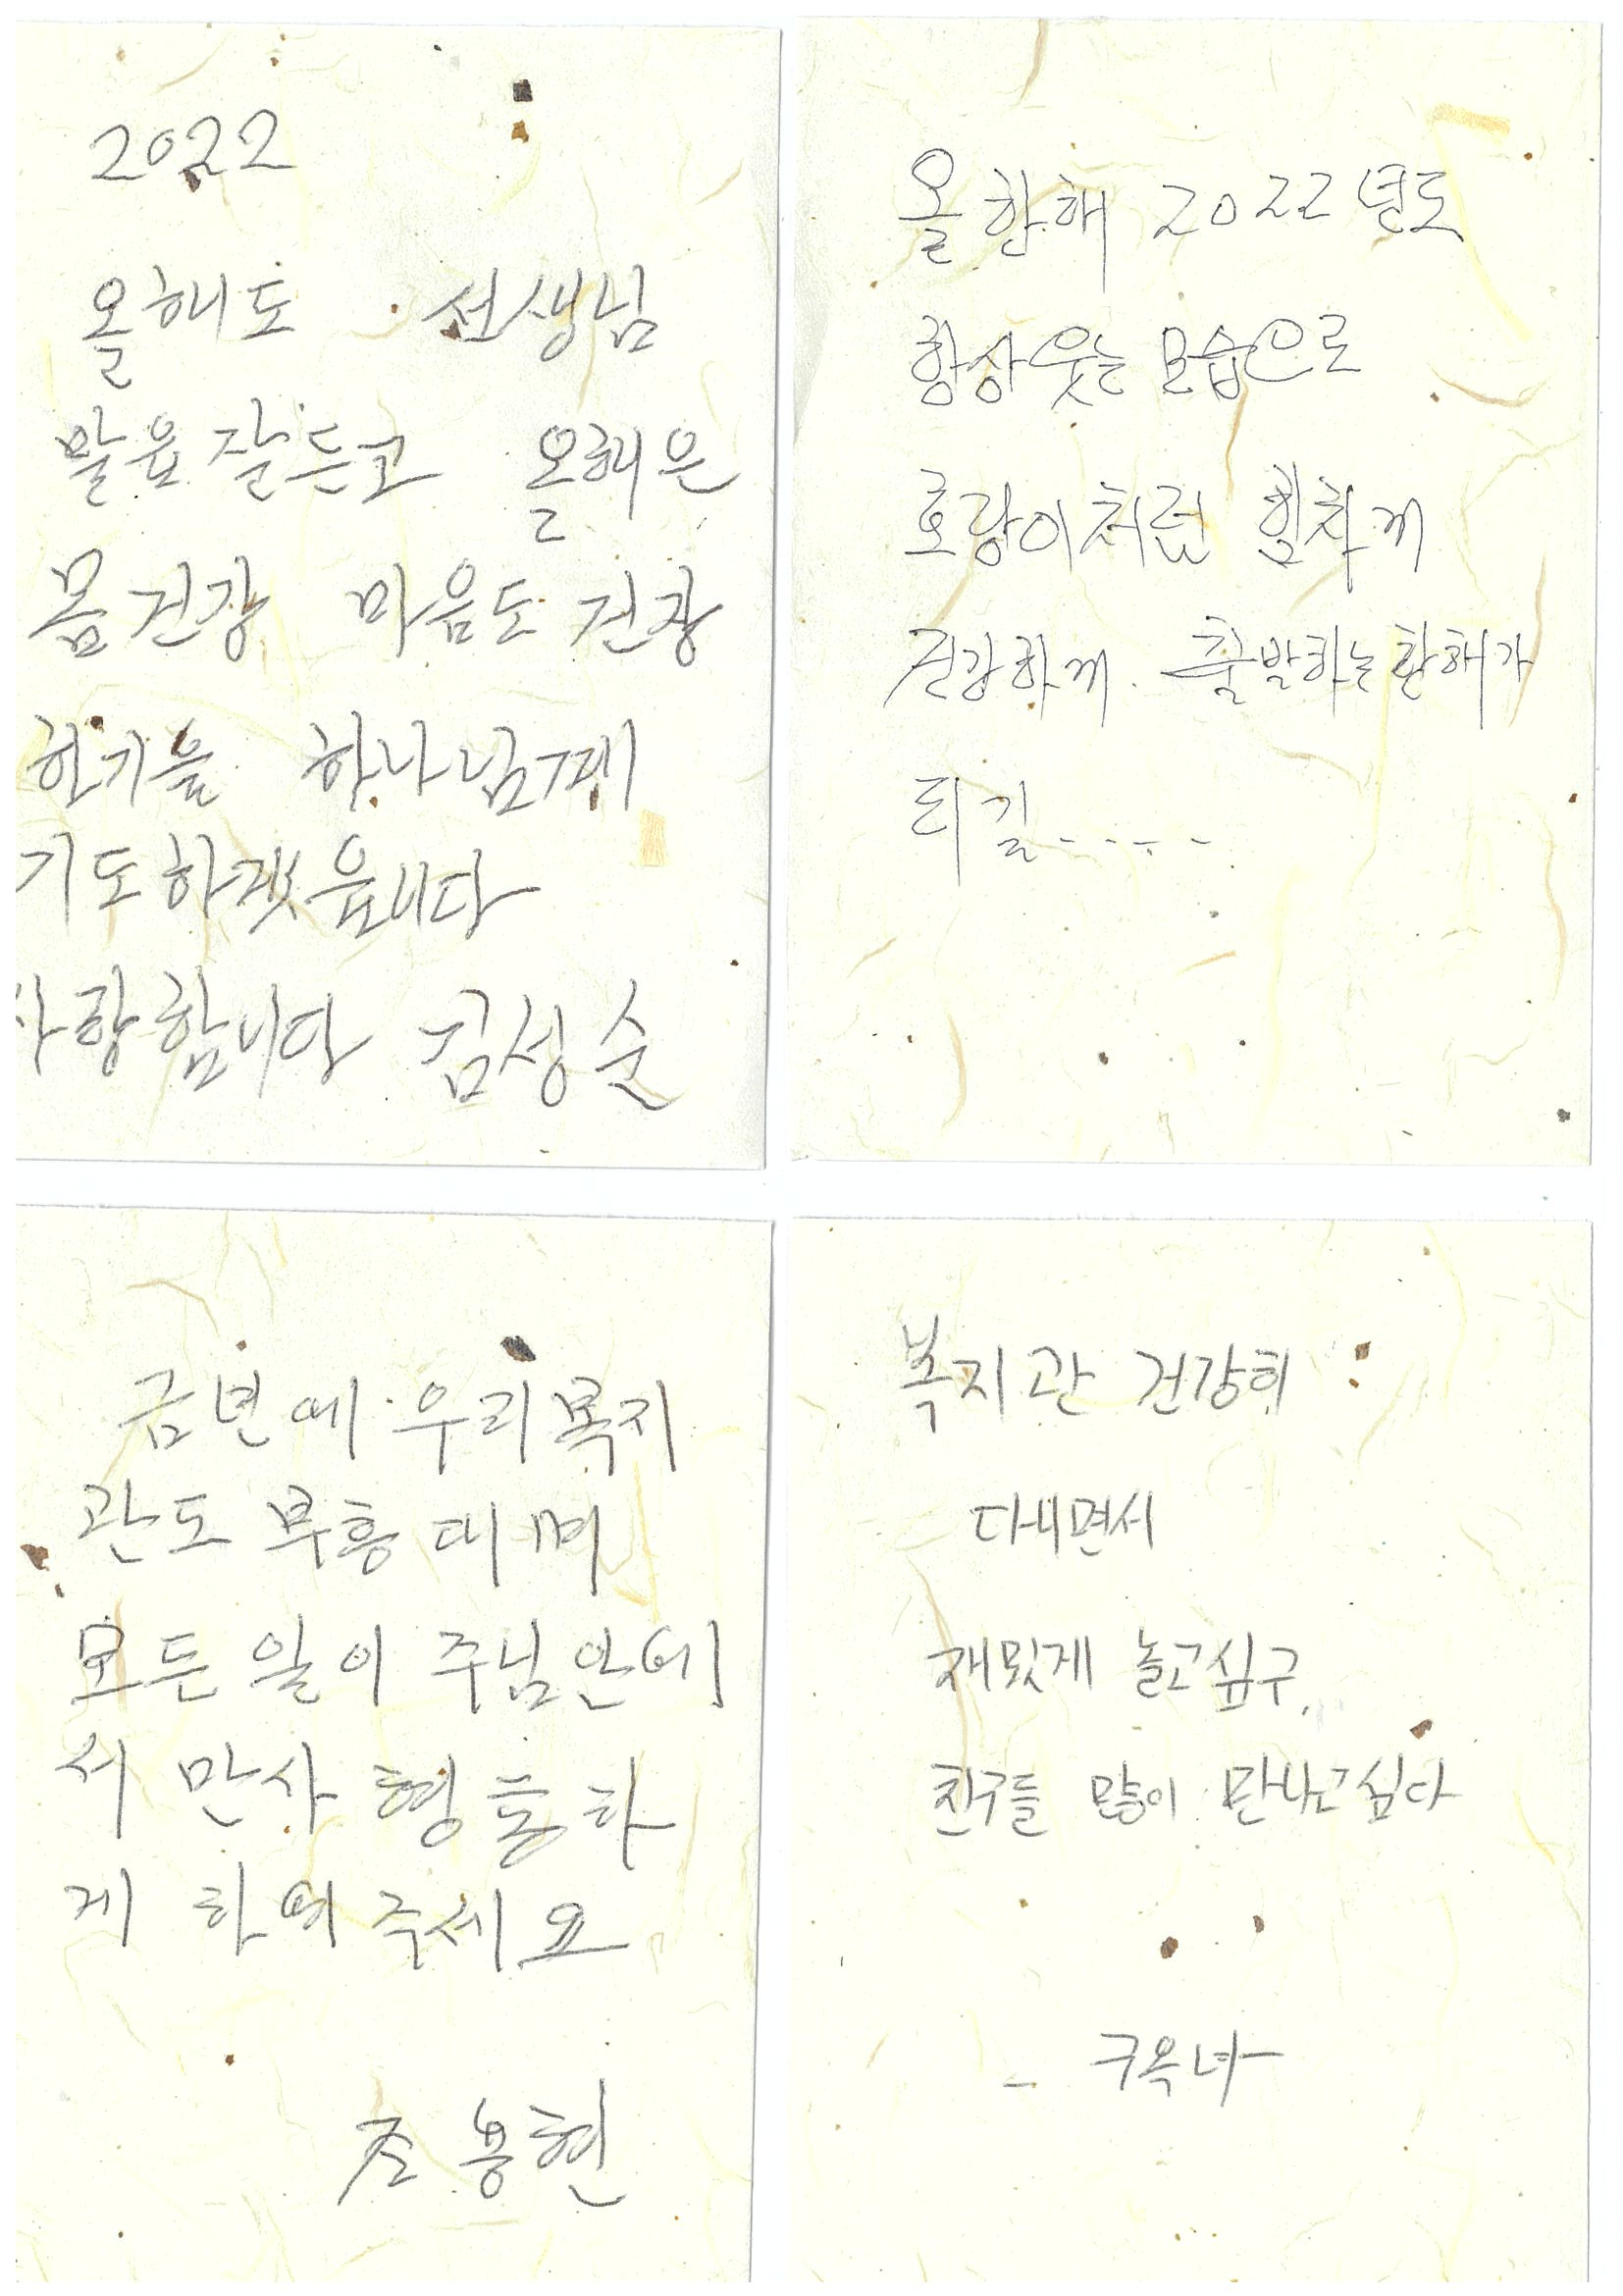 2022
올해도 선생님
말음 잘듣고 올해은
몸건강 마음도 건강
하기을 하나님게
기도하갯읍니다
사랑합니다 김성순
올 한해 2022년도
항상 웃는 모습으로
호랑이처럼 힘차게
건강하게. 출발하는 한해가
되길.....
금년에 우리복지
관도 부흥대며
모든일이 주님안에
서 만사 형통하
게 하여주세요
조봉현
복지관 건강히
다니면서
재밌게 놀고싶구,
친구들 많이 만나고싶다
- 구옥녀-